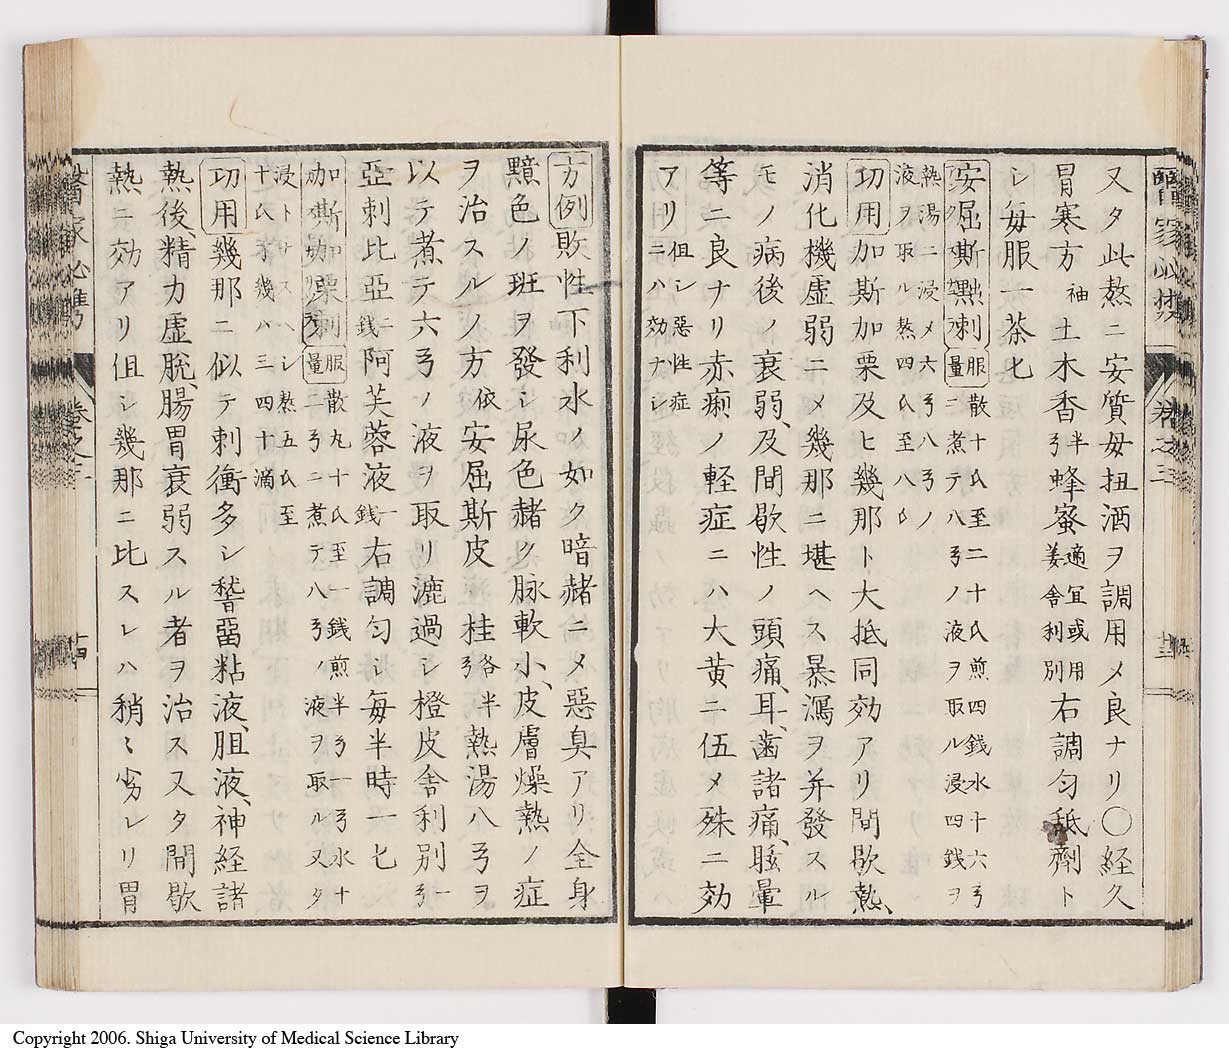 又タ此熬ニ安質母扭酒ヲ調用メ良ナリ〇経久
胃寒方 袖 土木香 半弓 蜂蜜 適宜或用姜舎利別 右調匀舐劑ト
シ毎服一茶匕
安屈斯黙剌 服量 散十氏至二十氏煎四銭水十六弓
ニ煮テ八弓ノ液ヲ取ル浸四銭ヲ
熱湯ニ浸メ六弓八弓ノ
液ヲ取ル熬四氏至八氏
功用 加斯加栗及ヒ幾那ト大抵同効アリ間歇熱、
消化機虚弱ニメ幾那ニ堪ヘス暴瀉ヲ并發スル
モノ病後ノ衰弱、及間歇性ノ頭痛、耳、歯諸痛、眩暈
等ニ良ナリ赤痢ノ軽症ニハ大黄ニ伍メ殊ニ効
アリ 但シ惡性症ニハ効ナシ
方例 敗性下利水ノ如ク暗赭ニメ惡臭アリ全身
黯色ノ斑ヲ發シ尿色赭ク脉軟小、皮膚燥熱ノ症
ヲ治スルノ方 依 安屈斯皮 桂 各半弓 熱湯八弓ヲ
以テ煮テ六弓ノ液ヲ取リ漉過シ橙皮舎利別 一弓
亞剌比亞 二銭 阿芙蓉液 一銭 右調匀シ毎半時一匕
加斯加栗剌 服量 散丸十氏至一銭煎半弓一弓水十
二弓ニ煮テ八弓ノ液ヲ取ル又タ
浸トナスヘシ熬五氏至
十氏 三四十滴
功用 幾那ニ似テ刺衝多シ 粘液、胆液、神経諸
熱、熱後、精力虚脱、腸胃衰弱スル者ヲ治ス又タ間歇
熱ニ効アリ但シ幾那ニ比スレハ稍〻劣レリ胃
醫家必携
卷之三
Copyright 2006. Shiga University of Medical Science Library